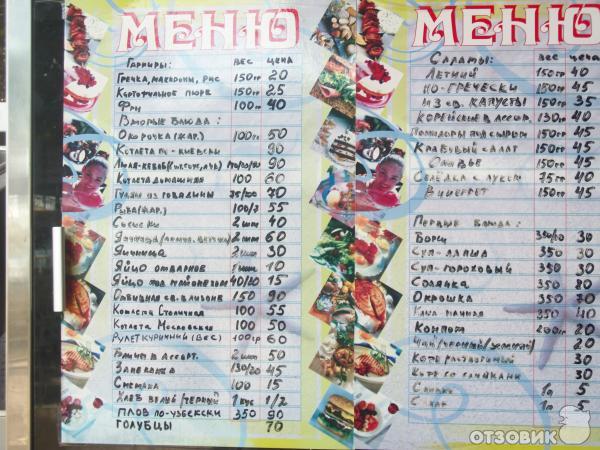 МЕНЮ
Гарниры: вес цена
Гречка, макароны, рис 150гр 20
Картофельное пюре 150гр 25
Фри 100гр 40
Вторые блюда:
Окорочка (жар.) 100гр 50
Котлета по-киевски 90
Люля-кебаб 90
Котлета домашняя 100 60
Гуляш из говядины 75/100 70
Рыба (жар.) 55
Сосиски 2шт 40
Яичница 2шт 60
Яичница 2шт 30
Яйцо отварное 1шт 10
Яйцо под майонезом 40/20 15
Отбивная св. в кляре 150 90
Колбаса Столичная 100 55
Котлета Московская 100 50
Рулет куриный (вес) 100гр 60
Блины в ассорт. 2шт 50
Запеканка 130/20 45
Сметана 100 15
Хлеб белый/черный 1кус 1/2
Плов по-узбекски 350 90
Голубцы 70
МЕНЮ
Салаты: вес цена
Летний 150гр 40
По-гречески 150гр 45
Из св. капусты 150гр 35
Корейские в ассор. 130гр 40
Помидоры под сыром 150гр 45
Крабовый салат 150гр 45
Оливье 150гр 45
Селёдка с луком 75гр 40
Винегрет 150гр 45
Первые блюда:
Борщ 350/20 30
Суп-лапша 350 30
Суп-гороховый 350 30
Солянка 350 80
Окрошка 350 70
Каша манная 350 40
Компот 200гр 20
Чай (черный/зеленый) 20
Кофе растворимый 30
Кофе со сливками 30
Сливки 1п 5
Сахар 1п 5
ОТЗОВИК